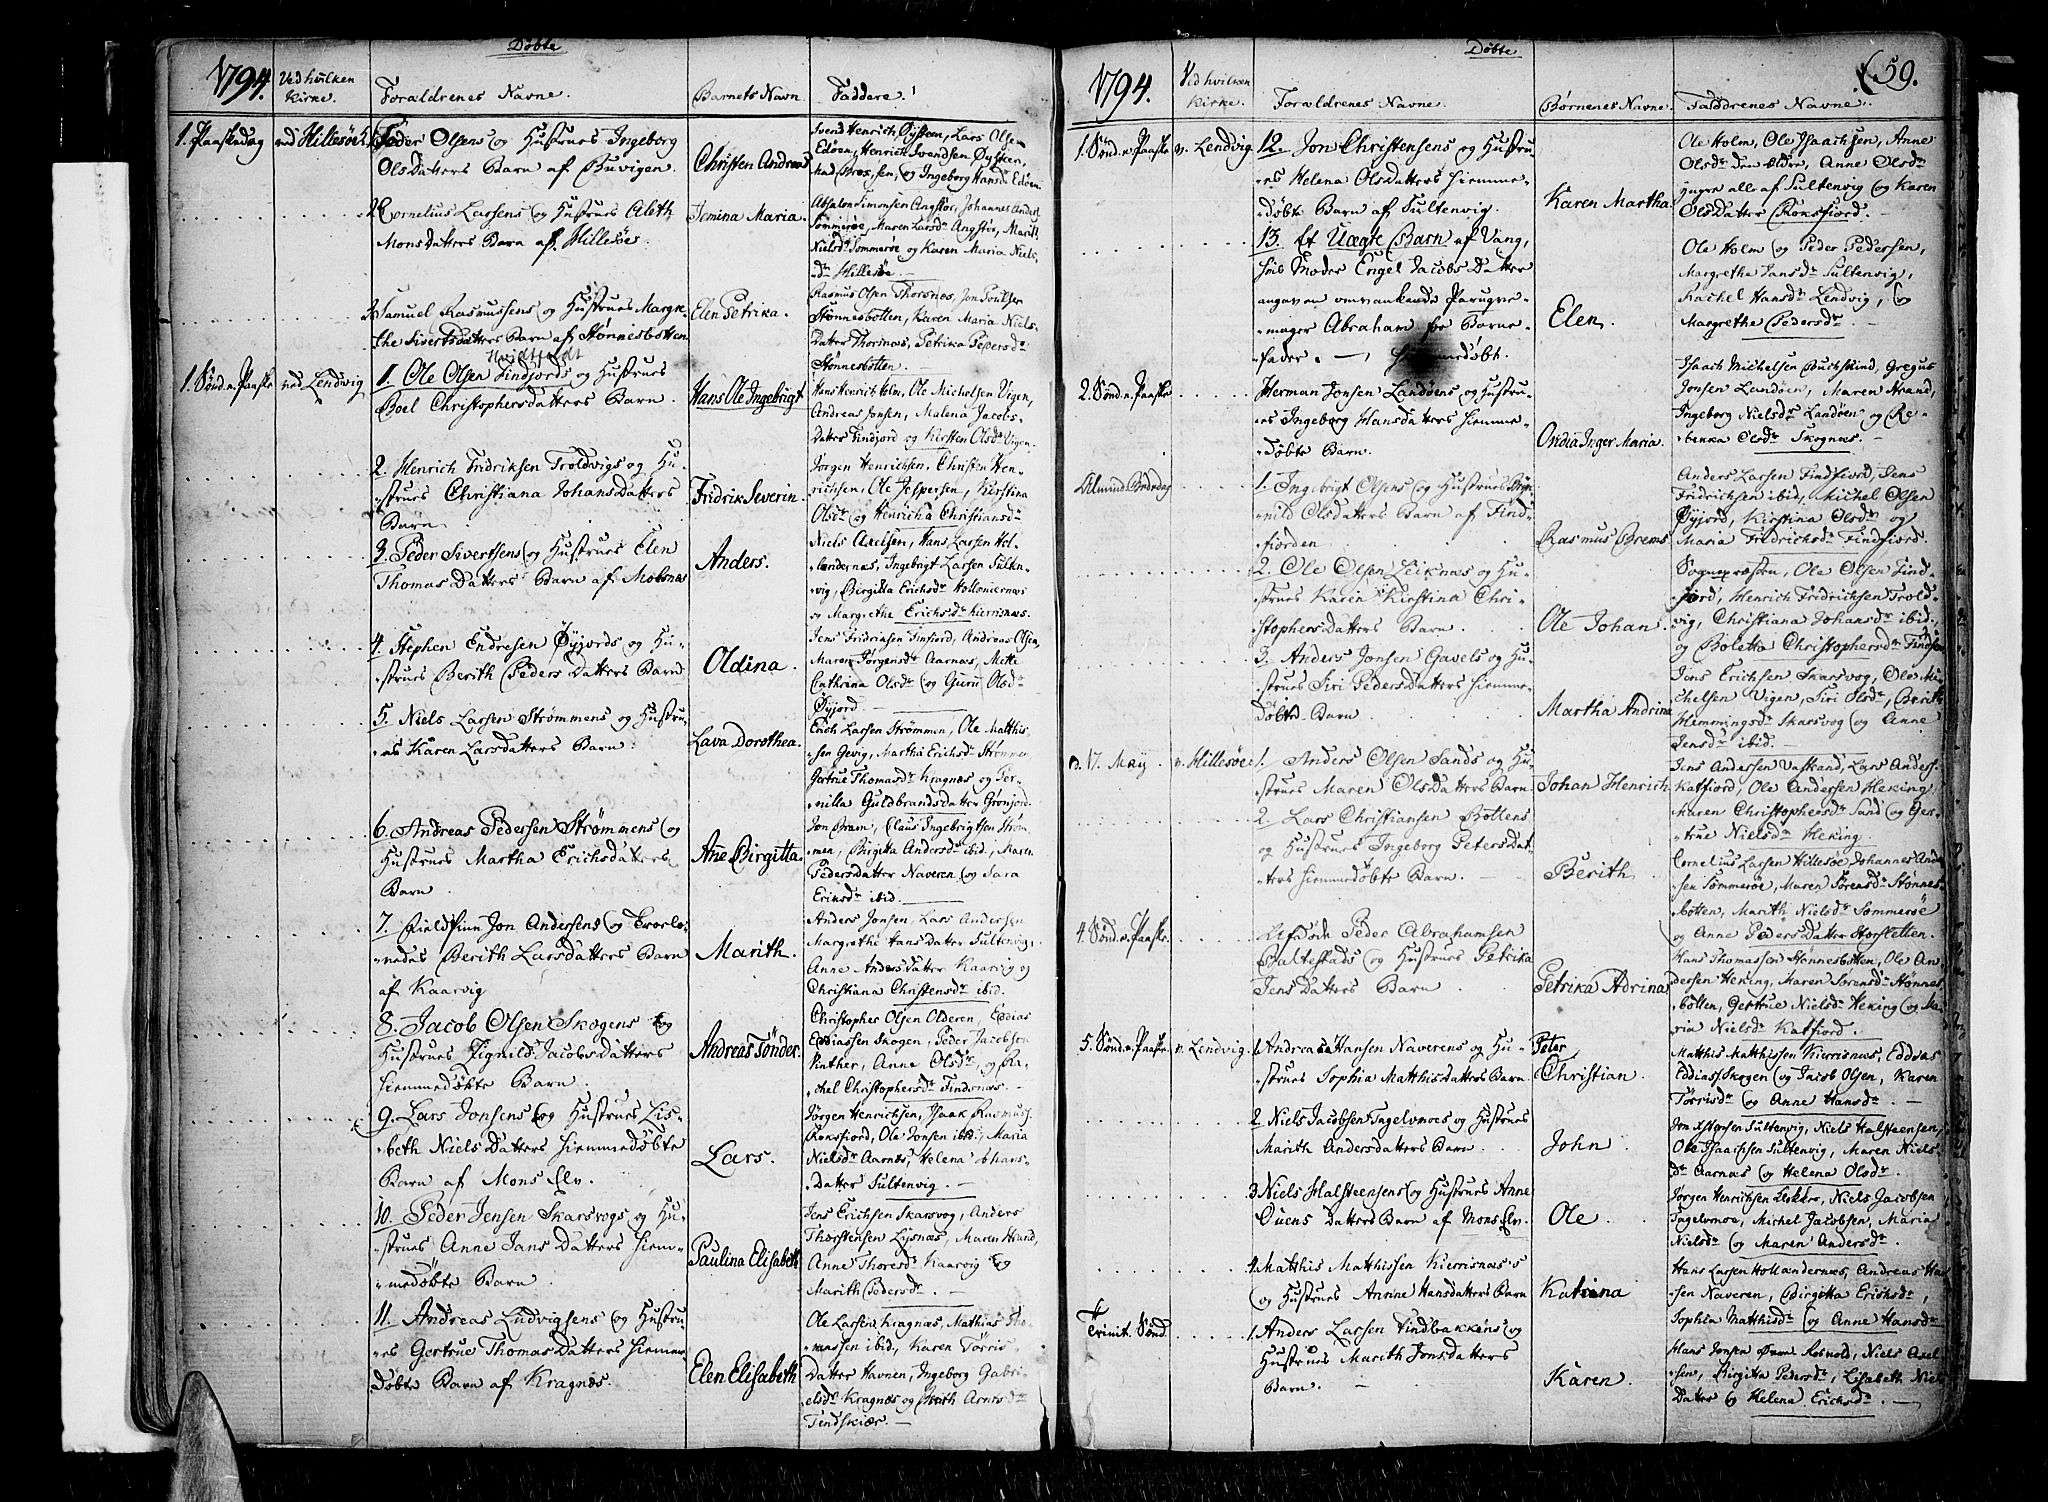 Døbte
1794.
Ved hvilken Kirke.
Forældrenes Navne.
Barnets Navn
Faddere.
1. Paaskedag
ved Hillesøe
1. Peder Olsens og Hustrues Ingeborg
Ols Datters Barn af Buvigen.
Christen Andreas
Svend Henrich Øysten, Lars Olsen
Edøen, Henrich Svendsen Øysten,
og Ingeborg Hansdr Edøen
2. Cornelius Larsens og Hustrues Aleth
Mons Datters Barn af Hillesøe.
Jemina Maria.
Absalon Simonsen Angstør, Johannes Anders.
Sommerøe, Maren Larsdr Angstør, Marith
Nielsdr Sommerøe og Karen Maria Niels
dr Hillesøe.
3. Samuel Rasmussens og Hustrues Margre
the Sivertsdatters Barn af Stønnesbotten
Elen Petrika.
Rasmus Olsen Thorsnæs, Jon Povelsen
Stønnesbotten, Karen Maria Niels
Datter Thorsnæs, Petrika Pedersdr
Stønnesbotten.
1. Sønd. n. Paaske
ved Lendvig
Hvidtfeldt
1. Ole Olsen Findjords og Hustrues
Boel Christophersdatters Barn.
Hans Ole Ingebrigt
Hans Henrich Holm, Ole Michelsen Vigen,
Andreas Jonsen, Malena Jacobs
Datter Findjord og Kirsten Olsdr Vigen.
2. Henrich Fridriksen Troldvigs og Hu-
strues Christiana Johans Datters
Barn
Fridrik Severin
Jørgen Henrichsen, Christen Hen-
richsen, Ole Jespersen, Kirstina
Olsdr og Henricha Christiansdr
3. Peder Sivertsens og Hustrues Elen
Thomas Datters Barn af Molsnæs
Anders.
Niels Axelsen, Hans Larsen Hol-
lændernæs, Ingebrigt Larsen Sulten-
vig, Birgitta Erichsdr Hollændernæs
og Margrethe Erichsdr Kierrisnæs.
4. Stephen Endresen Øyjords og Hu-
strues Berith Peders Datters Barn
Oldina.
Jens Fridriksen Finfjord, Andreas Olsen,
Maren Jørgensdr Aarnæs, Mette
Cathrina Olsdr og Guru Olsdr
Øyjord.
5. Niels Larsen Strømmens og Hustru-
es Karen Larsdatters Barn.
Lava Dorothea.
Erich Larsen Strømmen, Ole Matthis
sen Gevig, Martha Erichsdr Strømmen
Gertrue Thomasdr Kragnæs og Per-
nilla Guldbrands Datter Grønjord
6. Andreas Pedersen Strømmens og
Hustrues Martha Erichsdatters
Barn
Ane Birgitta.
Jon Bram, Claus Ingebrigtsen Strøm
men, Birgitta Andersdr ibid., Maren
Pedersdatter Naveren og Sara
Eriksdr ibid.
7. Fieldfinn Jon Andersens og Trolo-
vedes Berith Larsdatters Barn
af Kaarvig
Marith.
Anders Jonsen, Lars Andersen
Margrethe Jans Datter Sultenvig,
Anne Anders datter Kaarvig og
Christiana Christensdr ibid.
8. Jacob Olsen Skogens og
Hustrues Signild Jacobsdatters
hiemmedøbte Barn
Andreas Tønder.
Christopher Olsen Olderen, Eddias
Eddiassen Skogen, Peder Jacobsen
Anne Olsdr og Ra-
chel Christophersdr Findsnæs.
9. Lars Jonsens og Hustrues Lis-
beth Niels Datters hiemmedøbte
Barn af Mons Elv.
Lars.
Jørgen Henrichsen, Isaak Rasmuss.
Roksfiord, Ole Jonsen ibid., Maria
Nielsdr Aarnæs, Helena Johans-
Datter Sultenvig.
10. Peder Jensen Skarsvogs og Hu-
strues Anne Jans Datters hiem-
medøbte Barn
Paulina Elisabeth
Jens Erichsen Skarsvog, Anders
Thorstensen Lysnæs, Maren Hrund,
Anne Thoresdr Kaarvig og
Marith Pedersdr.
11. Andreas Ludvigsens og Hustru-
es Gertrue Thomas Datters hiemme-
døbte Barn af Kragnæs.
Elen Elisabeth
Ole Larsen Kragnæs, Mathias Tho-
massen ibid, Karen Tørris
Datter Havnen, Ingeborg Gabri-
elsdr Kragnæs og Arntsdr
Tindskiær.
Døbte
59.
1794.
Ved hvilken Kirke.
Forældrenes Navne.
Børnenes Navne.
Faddrenes Navne.
1. Sønd. n. Paaske
v. Lendvig
12. Jon Christensens og Hustru-
es Helena Olsdatters hiemme-
døbte Barn af Sultenvig.
Karen Martha.
Ole Holm, Ole Isaachsen, Anne
Olsdr den ældre, Anne Olsdr
yngre all af Sultenvig og Karen
Ols Datter Roksfiord.
13. Et Uægte Barn af Vang,
hvis Moder Engel Jacobs Datter
angav en omvankende Parugve-
mager Abraham for Barne-
fader. — hiemmedøbt.
Elen.
Ole Holm og Peder Pedersen,
Margretha Jansdr Sultenvig,
Rachel Hansdr Lendvig, og
Margrethe Pedersdr.
2. Sønd. n. Paaske
Herman Jonsen Landøens og Hustru-
es Ingeborg Hansdatters hiemme-
døbte Barn.
Ovidia Inger Maria.
Isaach Michelsen Buchskind, Gregus
Jonsen Landøen, Maren Hrand,
Ingeborg Nielsdr Landøen og Re-
bekka Olsdr Skognæs.
Almind. Bededag
1. Ingebrigt Olsens og Hustrues Bryn
nild Olsdatters Barn af Find-
fiorden
Rasmus Brems
Anders Larsen Findfiord, Jens
Fridrichsen ibid, Michel Olsen
Øyjord, Kirstina Olsdr og
Maria Fridrichsdr Findfiord.
2. Ole Olsen Leiknæs og Hu-
strues Karen Kirstina Chri-
stophersdatters Barn
Ole Johan.
Sognepræsten, Ole Olsen Find-
fjord, Henrich Fridrichsen Trold-
vig, Christiana Johansdr ibid.
og Boletta Christophersdr Findfior
3. Anders Jonsen Gavels og Hu-
strues Siri Pedersdatters hiemme-
døbte Barn
Martha Andrina
Jens Erichsen Skarsvog, Ole Mi-
chelsen Vigen, Siri Olsdr, Berith
Hemmingsdr Skarsvog og Anne
Jensdr ibid.
d. 17. Maij.
v. Hillesøe
1. Anders Olsen Sands og Hu-
strues Maren Olsdatters Barn
Johan Henrich
Jens Andersen Vaskand, Lars Anders.
Katfiord, Ole Andersen Heking.
Maren Christophersdr Sand og Ger-
true Nielsdr Heking.
2. Lars Christiansen Bottens
og Hustrues Ingeborg Petersdat-
ters hiemmedøbte Barn.
Berith.
Cornelius Larsen Hillesøe, Johannes Ander
sen Sommerøe, Maren Sørensdr Stønnes-
botten, Marith Nielsdr Sommerøe
og Anne Peders Datter Storsletten.
4. Sønd. n. Paaske
Afdøde Peder Abrahamsen
Baltestads og Hustrues Petrika
Jens Datters Barn
Petrika Adrina
Hans Thomassen Stønnesbotten, Ole An-
dersen Heking, Maren Sørensdr Stønnes
botten, Gertrue Nielsdr Heking og Ma
ria Nielsdr Katfiord.
5. Sønd. n. Paaske
v. Lendvig.
1. Andreas Hansen Naverens og Hu-
strues Sophia Matthisdatters Barn
Peter
Christian
Matthis Matthissen Kierrisnæs, Eddias
Eddiass. Skogen og Jacob Olsen, Karen
Tørrisdr og Anne Hansdr.
2. Niels Jacobsen Tagelvmoes og Hustrues
Marith Andersdatters Barn
John
Jon Christensen Sultenvig, Niels Halsteensen,
Ole Isaachsen Sultenvig, Maren Niels-
dr Aarnæs og Helena Olsdr.
3. Niels Halsteensens og Hustrues Anne
Ouens Datters Barn af Mons Elv.
Ole
Jørgen Henrichsen Niels Jacobsen
Tagelvmoe, Michel Jacobsen, Maria
Nielsdr og Maren Andersdr.
4. Matthis Matthissen Kierrisnæs's
og Hustrues Annne Hansdatters Barn
Katrina
Hans Larsen Hollændernæs, Andreas Han
sen Naveren, Birgitta Erichsdr,
Sophia Matthisdr og Anne Hansdr
Trinit. Sønd.
1. Anders Larsen Findbakkens og
Hustrues Marith Jonsdatters
Barn.
Karen
Hans Jonsen Niels Axel-
sen, Birgitta Pedersdr, Lisabeth Niels
Datter og Helena Erichsdr.